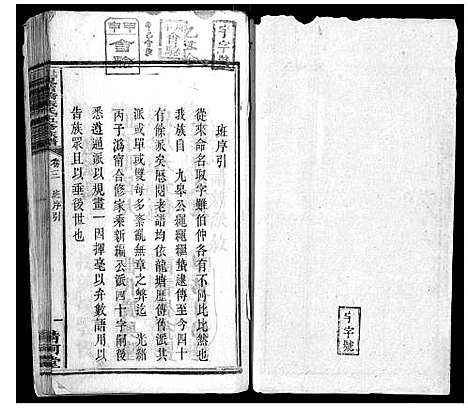 班序引
從來命名取字雖伯仲各有不同比比然也
我族自 九皋公繩繩蟄遠傳至今四十
有餘派矣歷閱老譜均依龍塘歷傳舊派其
派或單或雙每多紊亂無章之弊迄 光緒
丙子溈甯合修家乘新編公派四十字嗣後
悉遵通派以規畫一因揮毫以弁數語用以
告族眾且以垂後世也
卷三 班序引
一
清河堂
字號
會驗
字號